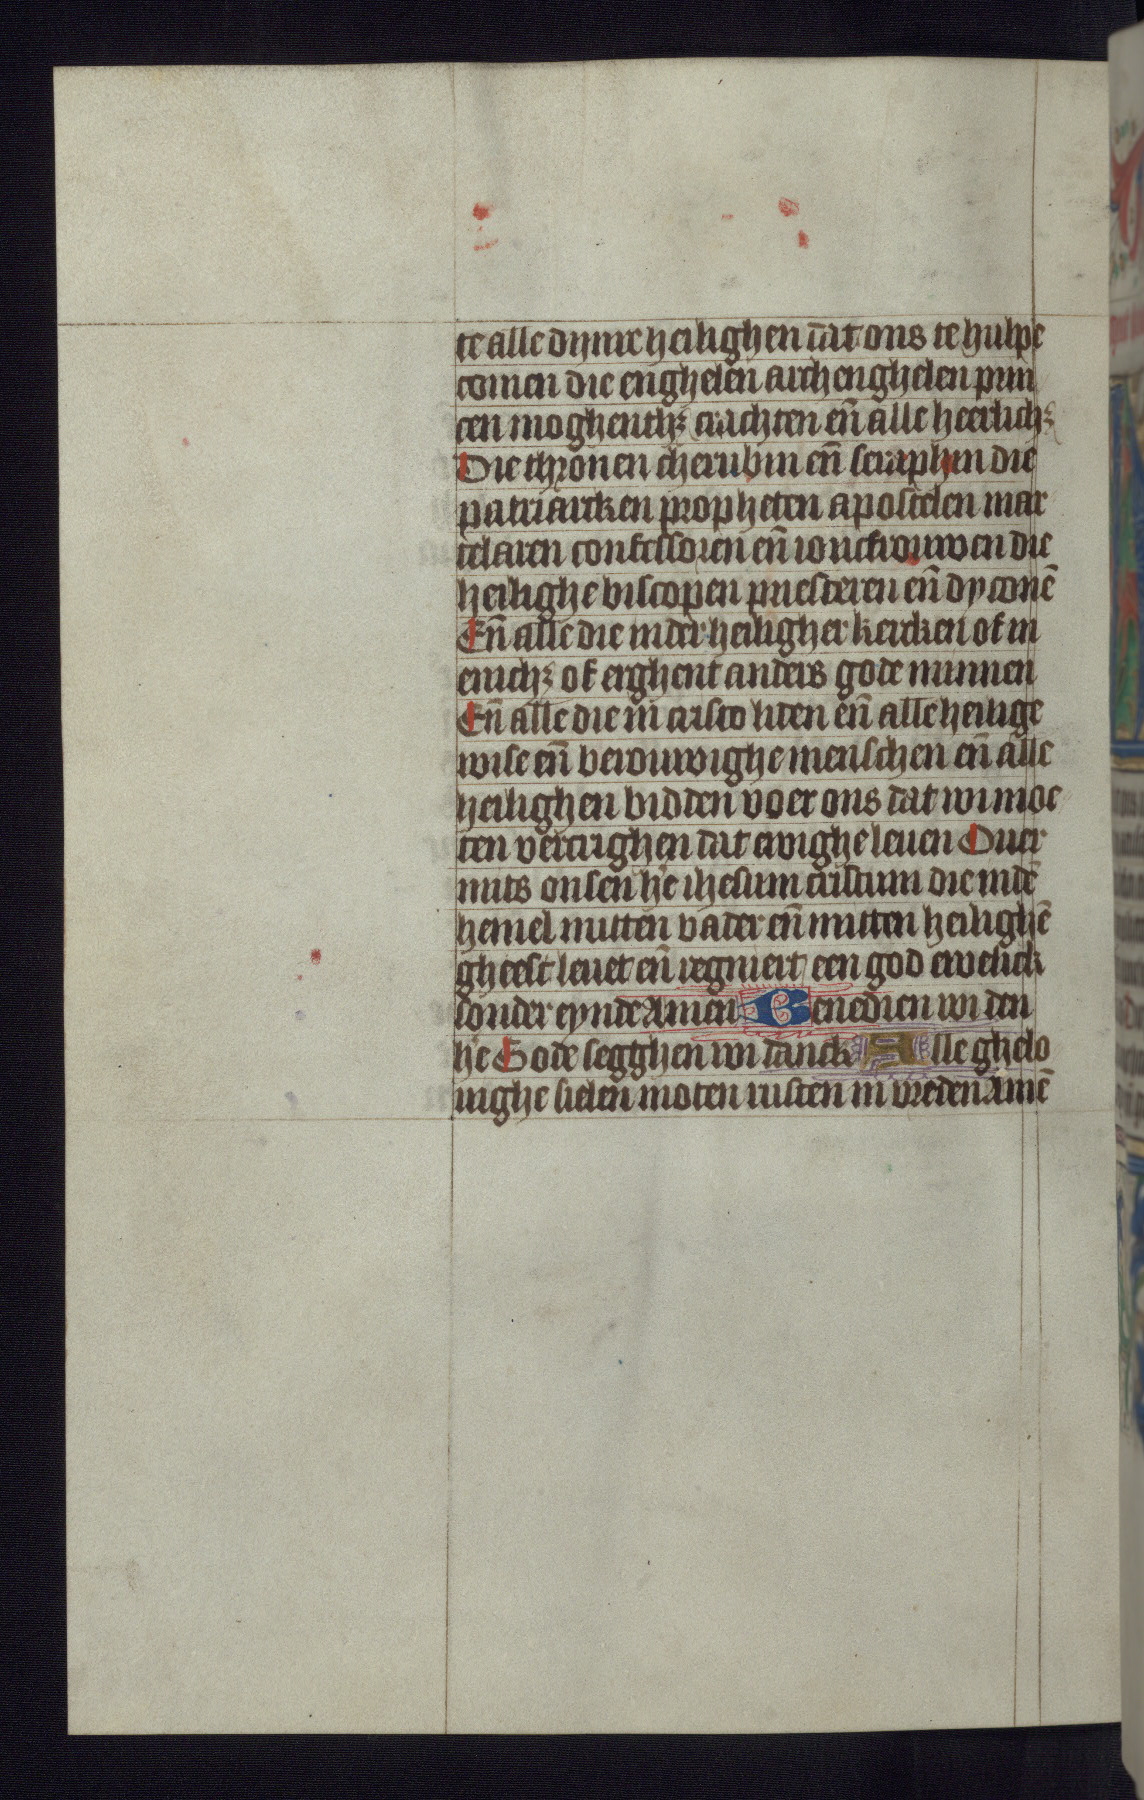 te alle dynre heilighen dat ons te hulpe
comen die enghelen archenghelen prin
cen moghenthꝫ crachten en̄ alle heerlichꝫ
Die thronen cherubin en̄ seraphin die
patriarken propheten apostelen mar
telaren confessoren en̄ ioncfrouwen die
heilighe biscopen priesteren en̄ dyconē
En̄ alle die in der heiligher kercken of in
enichꝫ of erghent anders gode minnen
En̄ alle die in cristo liten en̄ alle heilige
wise en̄ berouwighe menschen en̄ alle
heilighen bidden voer ons dat wi moe
ten vercrighen dat ewighe leuen Ouer
mits onsen he̅ ihesum cristum die in dē
hemel mitten vader en̄ mitten heilighē
gheest leuet en̄ regniert een god ewelick
sonder eynde Amen Benedien wi den
he̅ Gode segghen wi danck Alle ghelo
uighe sielen moten rusten in vreden Amē